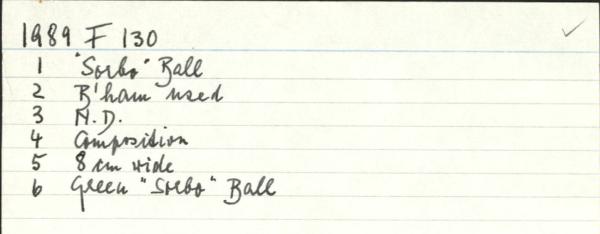 1989 F 130
1 "Sorbo" Ball
2 B'ham used
3 N.D.
4 Composition
5 8 cm wide
6 Green "Sorbo" Ball